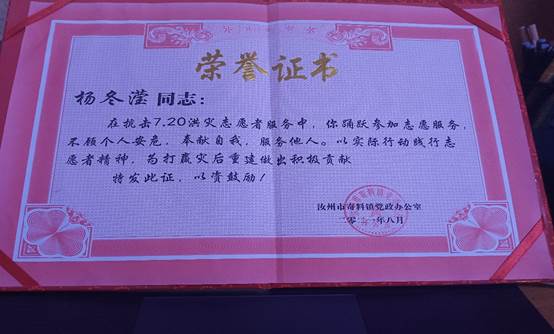 荣誉证书
杨冬滢同志：
在抗击7.20洪灾志愿者服务中，你踊跃参加志愿服务，
不顾个人安危，奉献自我，服务他人。以实际行动线行志
愿者精神，为打赢灾后重建做出积极贡献
特发此证，以资鼓励！
汝州市寄料镇党政办公室
二零二一年八月